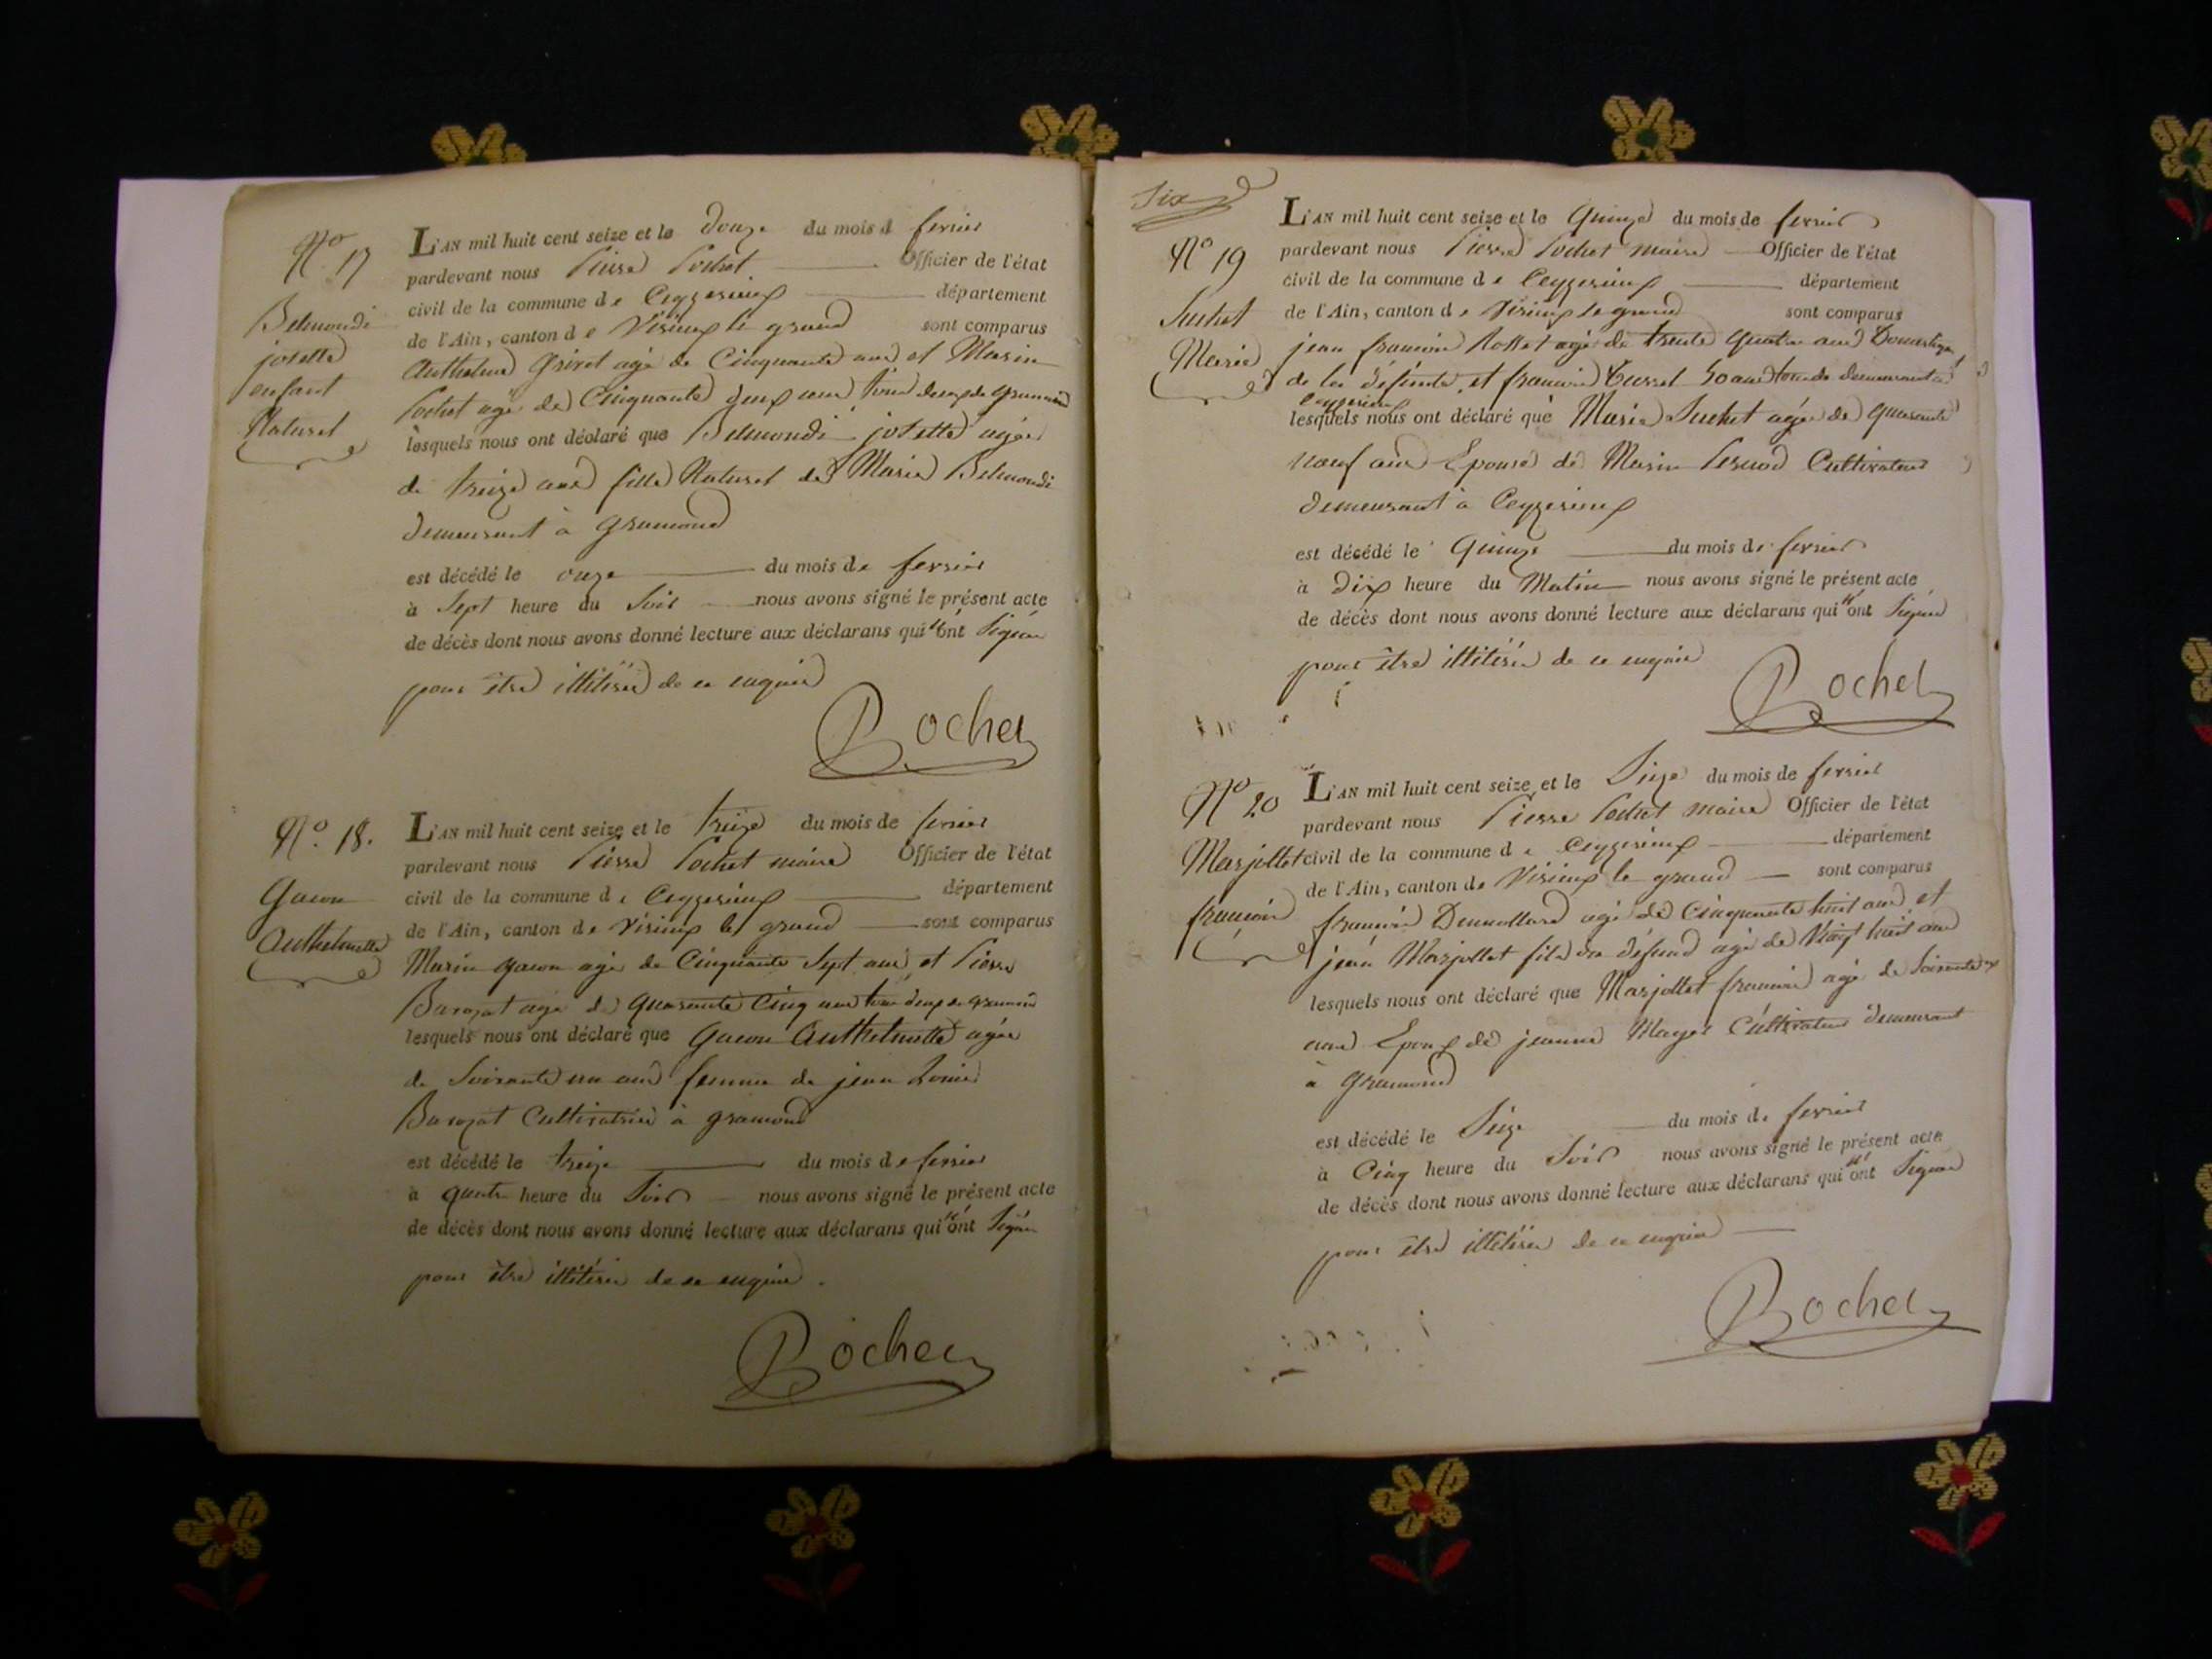 N° 17
Belmondi
josette
enfant
Naturel
L'AN mil huit cent seize et le Douze du mois de fevrier
pardevant nous Pierre Pochet Officier de l'état
civil de la commune de Ceyzerieux département
de l'Ain, canton de Virieux le grand sont comparus
Anthelme Grivet agé de Cinquante ans et Marin
Pochet agé de Cinquante deux ans tous deux de gramond
lesquels nous ont déclaré que Belmondi josette agée
de treize ans fille Naturel de Marie Belmondi
demeurant à gramond
est décédé le onze du mois de fevrier
à Sept heure du Soir nous avons signé le présent acte
de décès dont nous avons donné lecture aux déclarans qui n'ont Signé
pour être illitéré de ce enquis
Pochet
N°. 18.
Gacon
Anthelmette
L'AN mil huit cent seize et le treize du mois de fevrier
pardevant nous Pierre Pochet maire Officier de l'état
civil de la commune de Ceyzerieux département
de l'Ain, canton de Virieux le grand sont comparus
Marin gacon agé de Cinquante Sept ans et Pierre
Barozat agé de quarante Cinq ans tous deux de gramond
lesquels nous ont déclaré que Gacon Anthelmette agée
de Soixante un ans femme de jean Louis
Barozat Cultivatrice à gramond
est décédé le treize du mois de fevrier
à quatre heure du Soir nous avons signé le présent acte
de décès dont nous avons donné lecture aux déclarans qui n'ont Signé
pour être illitéré de ce enquis.
Pochet
Six
N° 19
Suchet
Marie
L'AN mil huit cent seize et le Quinze du mois de fevrier
pardevant nous Pierre Pochet maire Officier de l'état
civil de la commune de Ceyzerieux département
de l'Ain, canton de Virieux le grand sont comparus
jean francois agé de trente quatre ans Domestique
de la défunte et francois 50 ans tous deux demeurant à
Ceyzerieux
lesquels nous ont déclaré que Marie Suchet agée de quarante
neuf ans Epouse de Marin Pernod Cultivateur
demeurant à Ceyzerieux
est décédé le Quinze du mois de fevrier
à Dix heure du Matin nous avons signé le présent acte
de décès dont nous avons donné lecture aux déclarans qui n'ont Signé
pour être illitéré de ce enquis
Pochet
N° 20
Marjollet
francois
L'AN mil huit cent seize et le Sieze du mois de fevrier
pardevant nous Pierre Pochet maire Officier de l'état
civil de la commune de Ceyzerieux département
de l'Ain, canton de Virieux le grand sont comparus
francois agé de Cinquante huit ans et
jean Marjollet fils du défund agé de Vingt huit ans
lesquels nous ont déclaré que Marjollet francois agé de Soixante
ans Epoux de jeanne Cultivateur demeurant
à Gramond
est décédé le Sieze du mois de fevrier
à Cinq heure du Soir nous avons signé le présent acte
de décès dont nous avons donné lecture aux déclarans qui n'ont Signé
pour être illitéré de ce enquis
Pochet